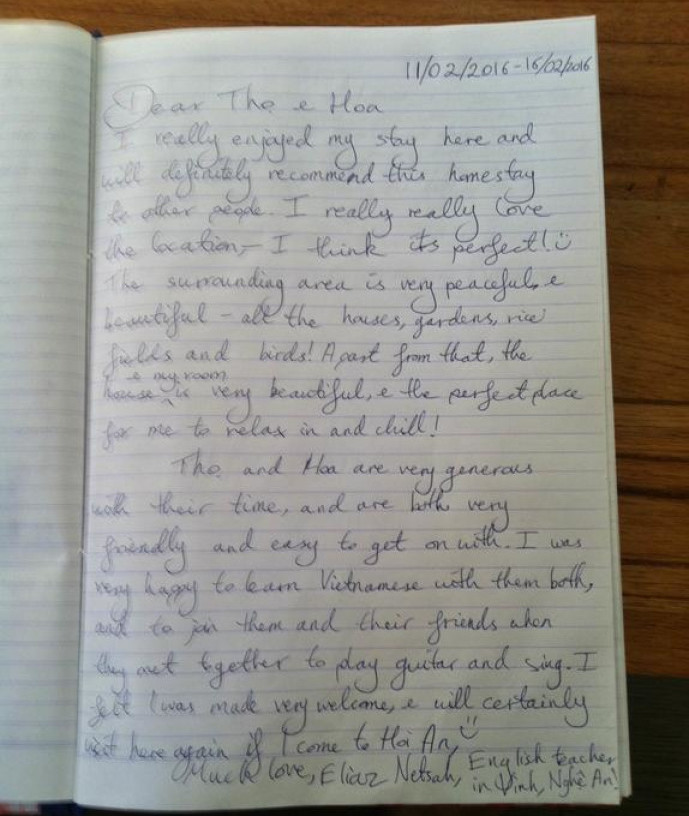 11/02/2016-16/02/2016
Dear Tho e Hoa
I really enjoyed my stay here and
will definitely recommend this homestay
to other people. I really really love
the location, – I think its perfect! ü
The surrounding area is very peaceful, e
beautiful – all the houses, gardens, rice
fields and birds! Apart from that, the
house ^ e my room is very beautiful, e the perfect place
for me to relax in and chill!
Tho and Hoa are very generous
with their time, and are both very
friendly and easy to get on with. I was
very happy to learn Vietnamese with them both,
and to join them and their friends when
they met together to play guitar and sing. I
felt I was made very welcome, e will certainly
visit here again if I come to Hoi An, ü
Much love, Eliaz Netsah, English teacher
in Vinh, Nghệ An!